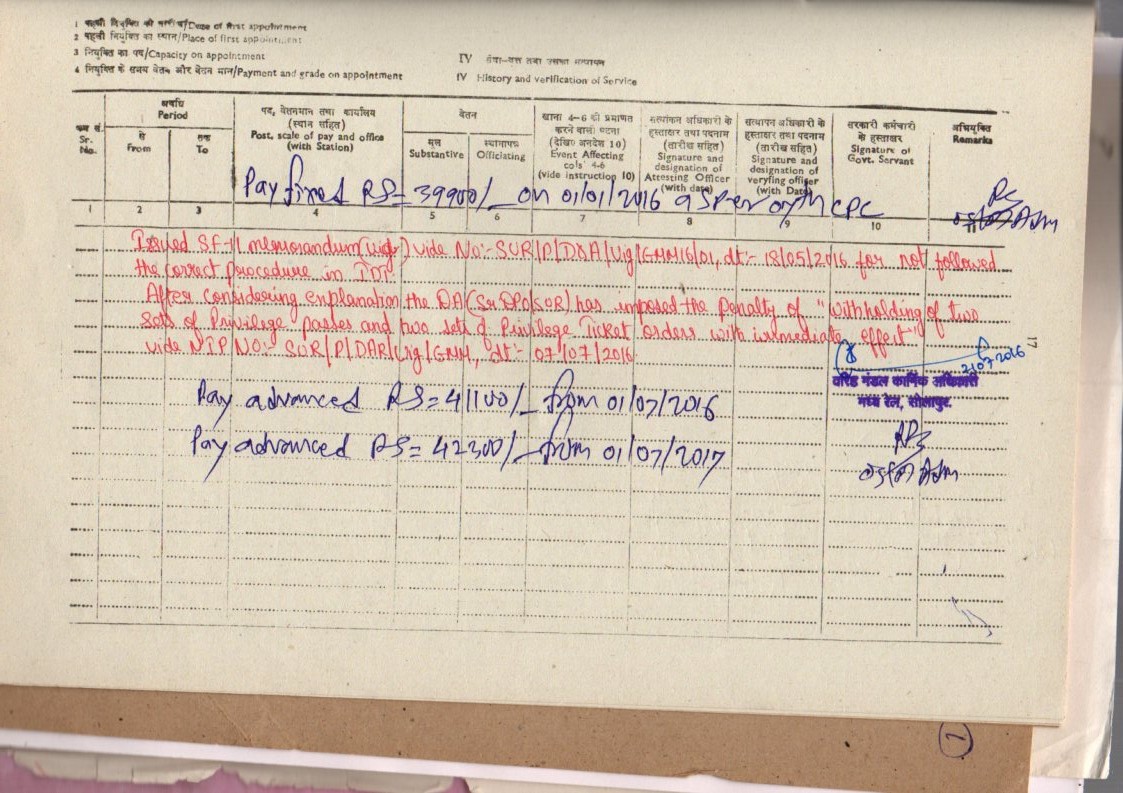 1 पहली नियुक्ति की तारीख/Date of first appointment
2 पहली नियुक्ति का स्थान/Place of first appointment
3 नियुक्ति का पद/Capacity on appointment
4 नियुक्ति के समय वेतन और वेतन मान/Payment and grade on appointment
IV सेवा-वृत्त तथा उसका सत्यापन
IV History and verification of Service
क्रम सं. Sr. No.
अवधि Period
से From
तक To
पद, वेतनमान तथा कार्यालय (स्थान सहित) Post, scale of pay and office (with Station)
वेतन
मूल Substantive
स्थानापन्न Officiating
खाना 4-6 को प्रभावित करने वाली घटना (देखिए अनुदेश 10) Event Affecting cols 4-6 (vide instruction 10)
सत्यांकन अधिकारी के हस्ताक्षर तथा पदनाम (तारीख सहित) Signature and designation of Attesting Officer (with date)
सत्यापन अधिकारी के हस्ताक्षर तथा पदनाम (तारीख सहित) Signature and designation of veryfing officer (with Date)
सरकारी कर्मचारी के हस्ताक्षर Signature of Govt. Servant
अभियुक्ति Remarks
Pay fixed RS= 39900/- on 01/01/2016 as per 07th CPC
1 2 3 4 5 6 7 8 9 10 11
Issued SF-11 memorandum(vig) vide No:- SUR/P/D&A/Vig/GMM/16/01, dt:- 18/05/2016 for not followed
the correct procedure in
After considering explanation the DA(Sr DPO/SUR) has imposed the penalty of "withholding of two
Sets of Privilege passes and two sets of Privilege Ticket orders with immediate effect"
vide NIP NO:- SUR/P/DAR/Vig/GMM, dt:- 07/07/2016
21.07.2016
वरिष्ठ मंडल कार्मिक अधिकारी
मध्य रेल, सोलापुर.
17
Pay advanced RS= 41100/- from 01/07/2016
Pay advanced RS= 42300/- from 01/07/2017